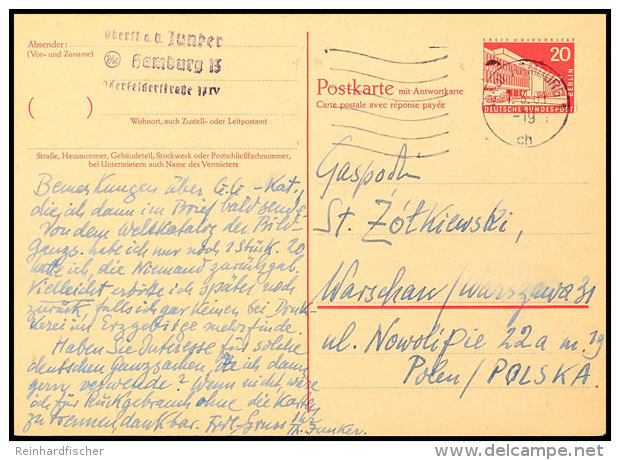 Oberst a.D. Junker
Absender:
(Vor- und Zuname)
Hamburg 13
Oderfelderstraße 17 IV
FREIE UNIVERSITÄT
20
BERLIN
DEUTSCHE BUNDESPOST
HAMBURG
-19
ch
Postkarte mit Antwortkarte
Carte postale avec réponse payée
( )
Wohnort, auch Zustell- oder Leitpostamt
Straße, Hausnummer, Gebäudeteil, Stockwerk oder Postschließfachnummer,
bei Untermietern auch Name des Vermieters
Bemerkungen über G.G-Kat.,
die ich dann im Brief bald sende.
Von dem Weltkatalog der Bild-
Ganzs. habe ich nur noch 1 Stück. 20
hatte ich, die Niemand zurückgab.
Vielleicht erbitte ich später noch
zurück, falls ich gar keinen bei Druk-
kerei im Erzgebirge mehr finde.
Haben Sie Interesse für solche
deutschen Ganzsachen, die ich dann
gern verwende? Wenn nicht, wäre
ich für Rückgebrauch ohne die Karten
zu trennen, dankbar. Frdl. Gruss Ihr
Th. Junker.
Gaspodin
St. Żółkiewski,
Warschau/Warszawa 31
ul. Nowolipie 22a m. 19
Polen/POLSKA.
Reinhardfischer